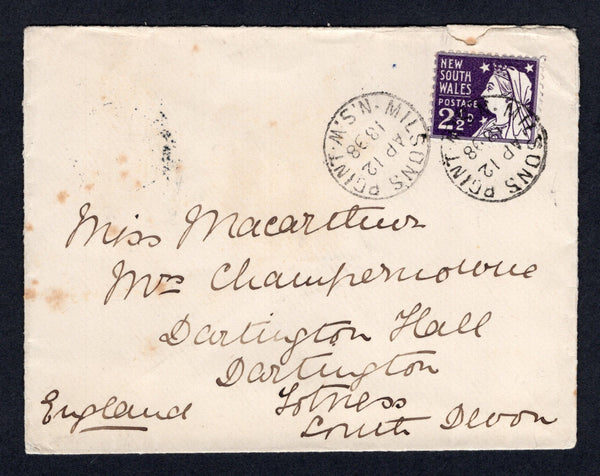 NEW
SOUTH
WALES
POSTAGE
2½D
MILSONS POINT · N.S.W
AP 12
1898
MILSONS POINT
AP 12
98
Miss Macarthur
Mrs Champernowne
Dartington Hall
Dartington
Totness
England
South Devon